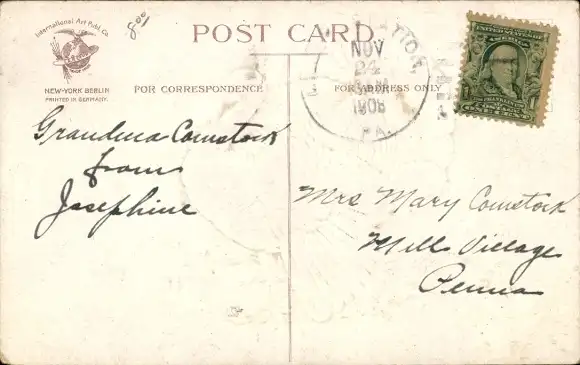 International Art Publ. Co.
NEW-YORK BERLIN
PRINTED IN GERMANY.
800
POST CARD.
FOR CORRESPONDENCE
FOR ADDRESS ONLY
NOV
24
1908
PA.
UNITED STATES OF
AMERICA
FRANKLIN
1
Grandma Comstock
from
Josephine
Mrs Mary Comstock
Mill Village
Penna